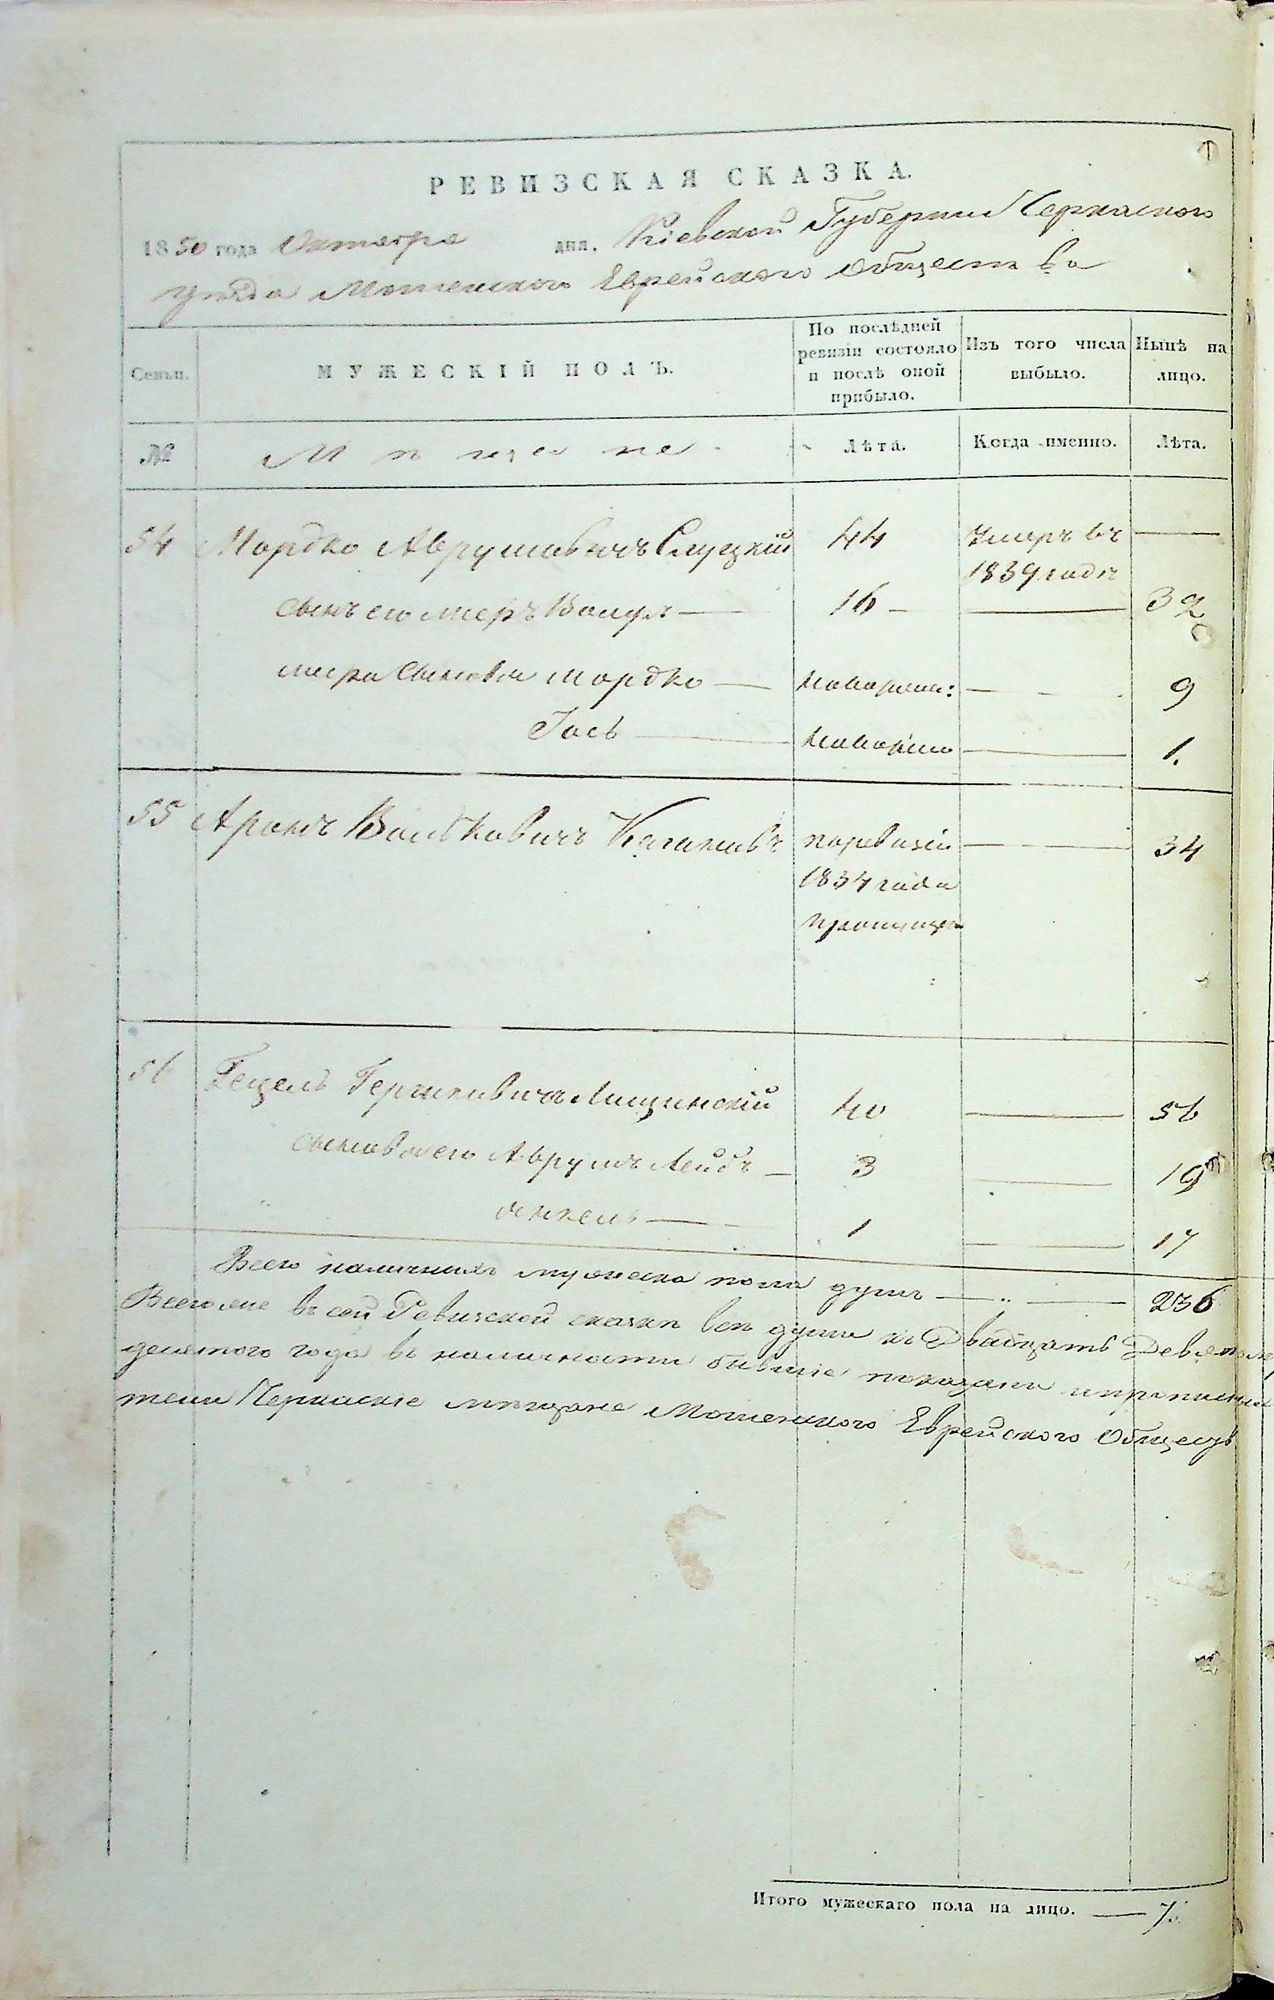 РЕВИЗСКАЯ СКАЗКА.
1850 года Октября дня. Кіевской Губерніи Черкаского
уѣзда Мошенского Еврейского общества
Семьи. МУЖЕСКІЙ ПОЛЪ. По послѣдней ревизіи состояло и послѣ оной прибыло. Изъ того числа выбыло. Нынѣ на лицо.
№ Мѣщане Лѣта. Когда именно. Лѣта.
54 Мордко Аврумовичъ Слуцкій 44 Умеръ въ
1839 годѣ
сынъ его Меръ Волфъ 16 32
Мера сыновья Мордко новорож: 9
Іось новорож 1.
55 Аронъ Волковичъ Кагановъ по ревизіи 34
1834 года
пропущен
56 Гецель Гершковичъ Лищинскій 40 56
сыновья его Аврумъ Лейбъ 3 19
Янкель 1 17
Всего наличныхъ мужеска пола душъ 236
Всего же въ сей Ревизской сказкѣ всѣ души къ Двадцать Девятое
десятого года въ наличности бывшіе показаны и
Черкаскіе мѣщане Мошенского Еврейского Общества
Итого мужескаго пола на лицо. 7.